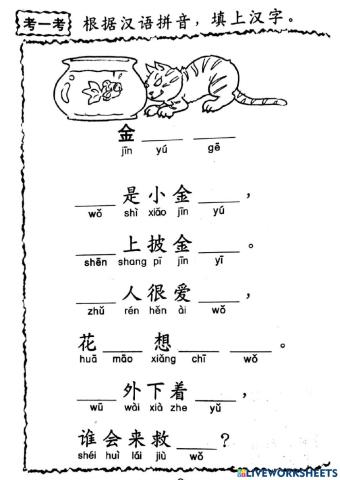 考一考 根据汉语拼音，填上汉字。
金 ____ ____
jīn yú gē
____ 是 小 金 ____ ，
wǒ shì xiǎo jīn yú
____ 上 披 金 ____ 。
shēn shang pī jīn yī
____ 人 很 爱 ____ ，
zhǔ rén hěn ài wǒ
花 ____ 想 ____ ____ 。
huā māo xiǎng chī wǒ
____ 外 下 着 ____ ，
wū wài xià zhe yǔ
谁 会 来 救 ____ ？
shéi huì lái jiù wǒ
LIVEWORKSHEETS